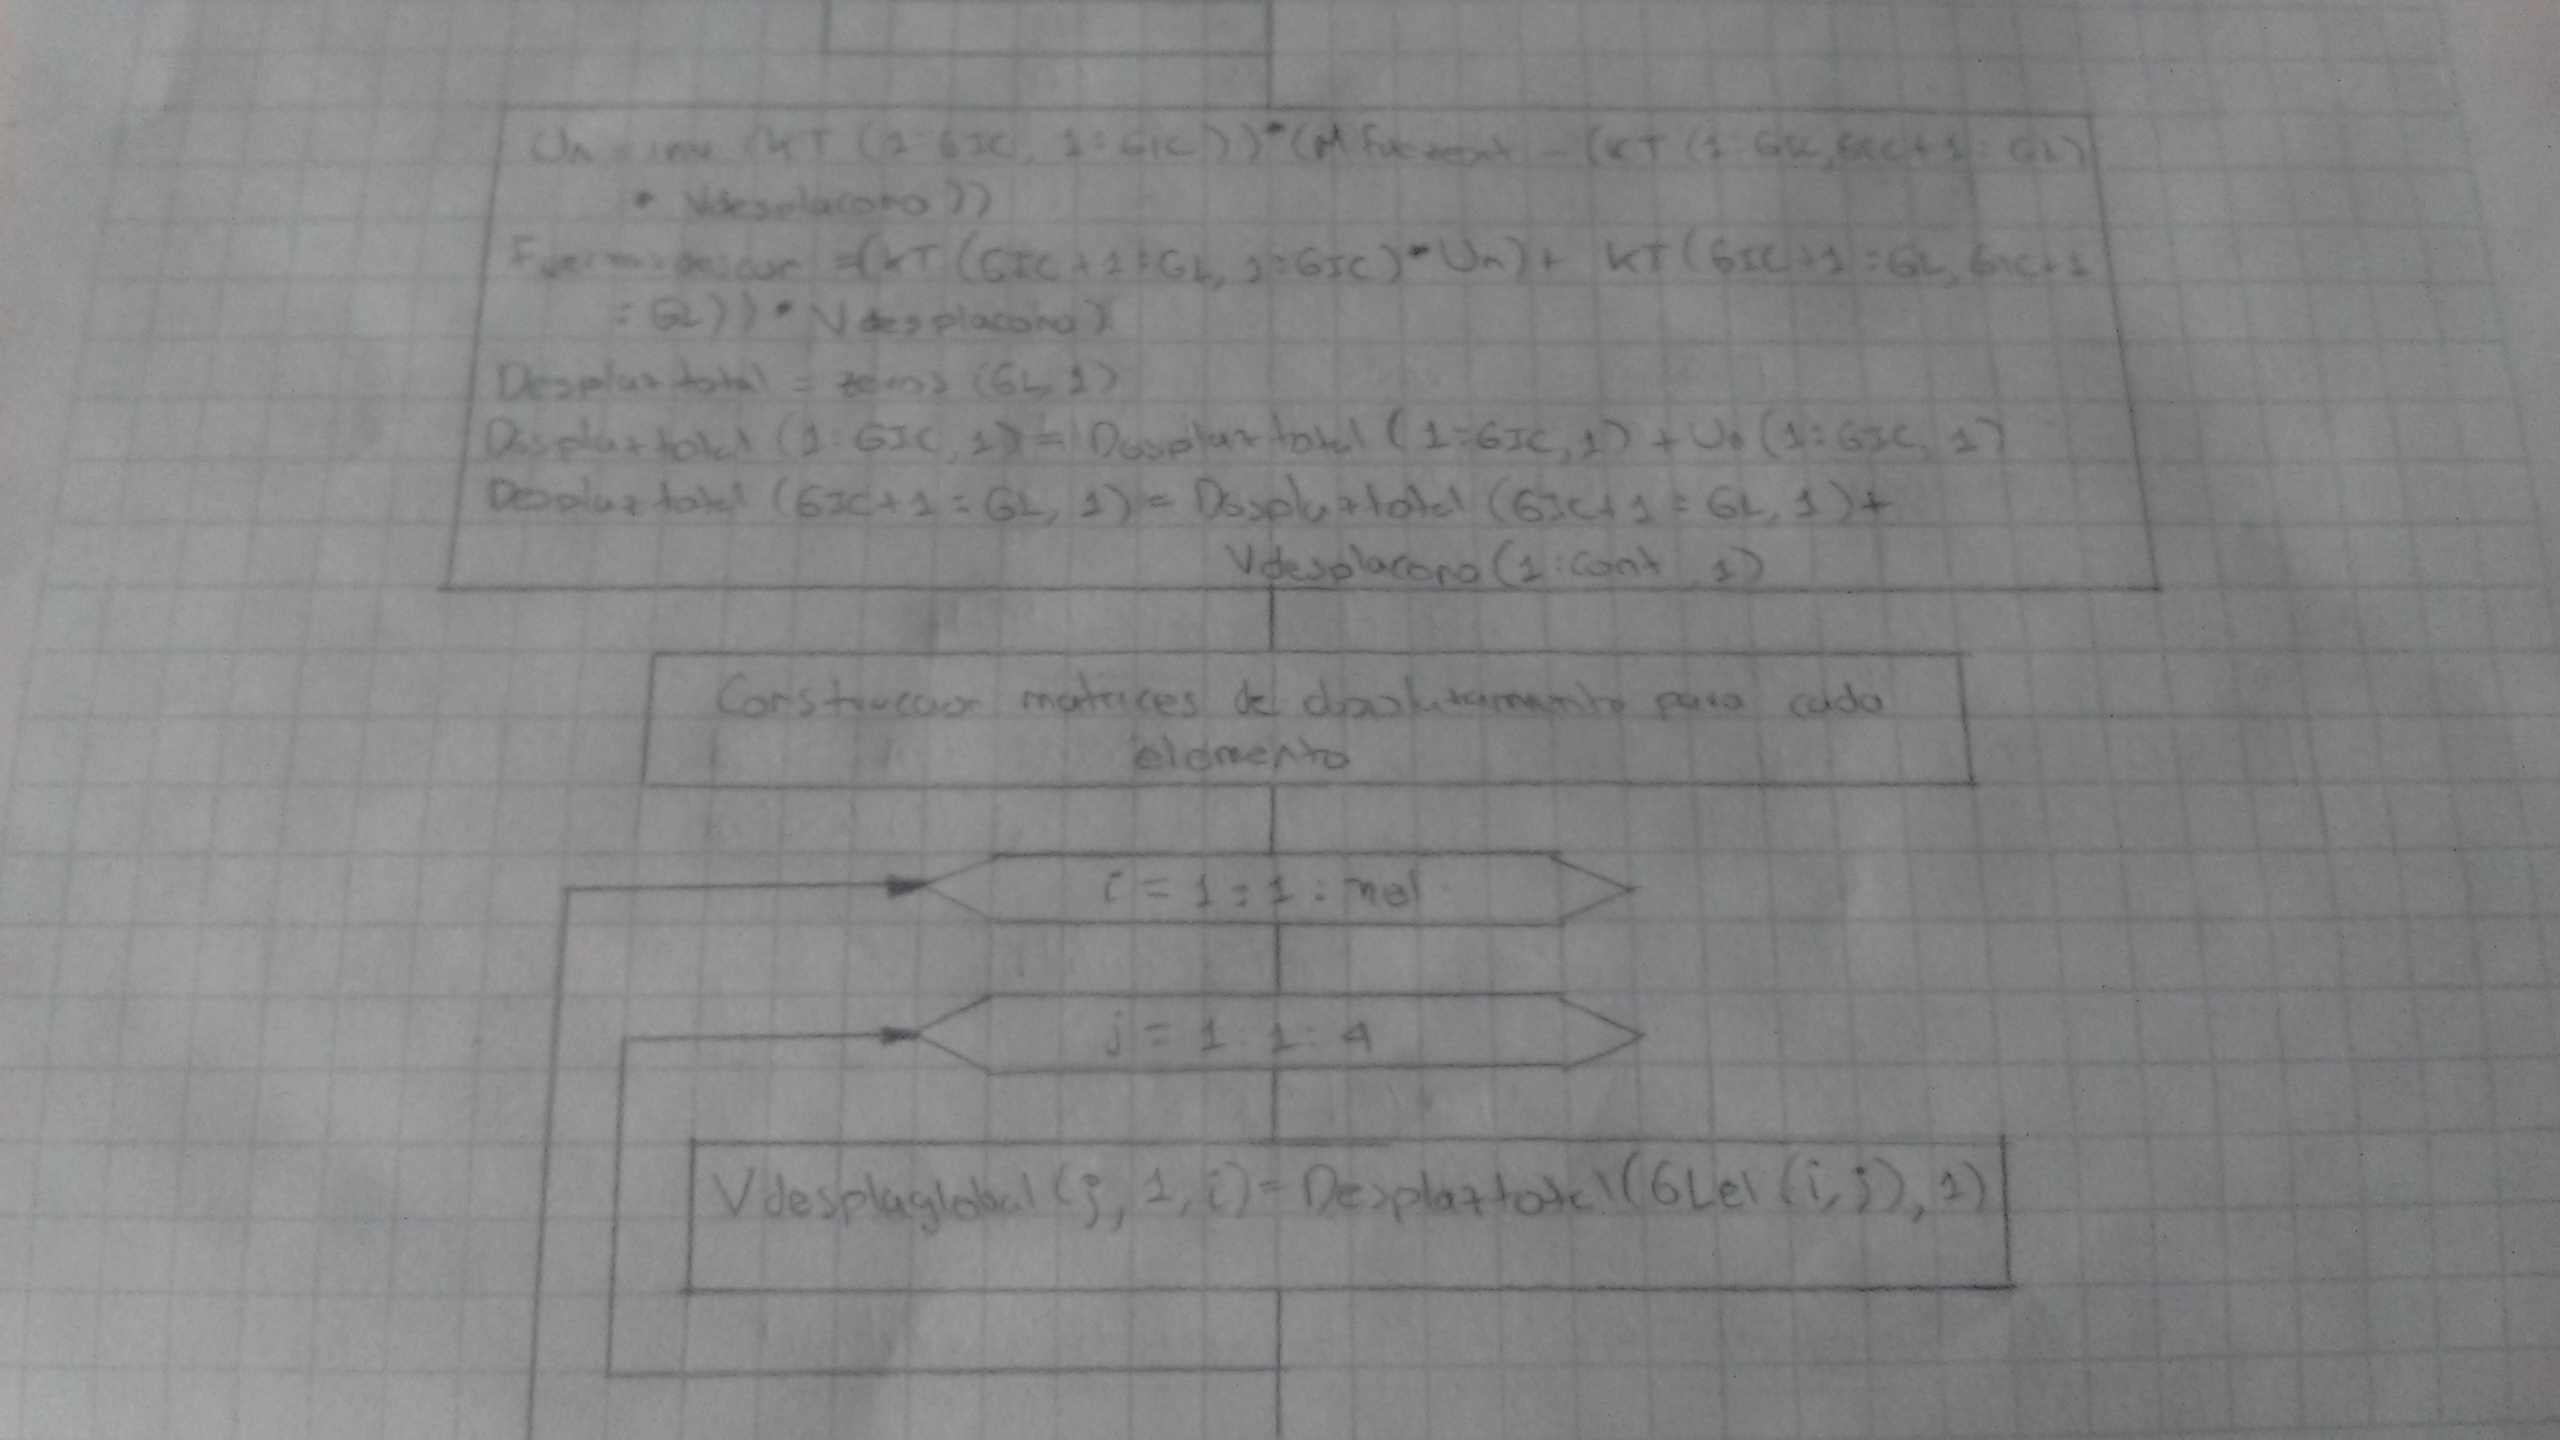 Un = inv (KT (1:GIC, 1:GIC))*(MFuezext - (KT (1:GIC,GIC+1:GL)
* Vdesplacono))
=(KT (GIC+1:GL, 1:GIC)*Un)+ KT(GIC+1:GL, GIC+1
:GL))*Vdesplacono)
Desplaztotal = zeros (GL,1)
Desplaztotal (1:GIC,1)=Desplaztotal (1:GIC,1)+Un(1:GIC,1)
Desplaztotal (GIC+1:GL,1)=Desplaztotal (GIC+1:GL,1)+
Vdesplacono(1:cont,1)
Construccion matrices de desplazamiento para cada
elemento
i=1:1:nel
j=1:1:4
Vdesplaglobal(j,1,i)=Desplaztotal(GLel(i,j),1)